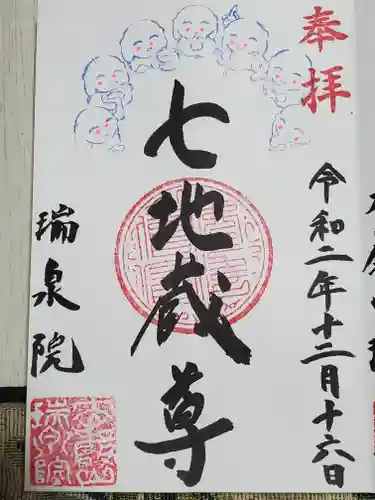 奉拝
令和二年十二月十六日
七地蔵尊
瑞泉院